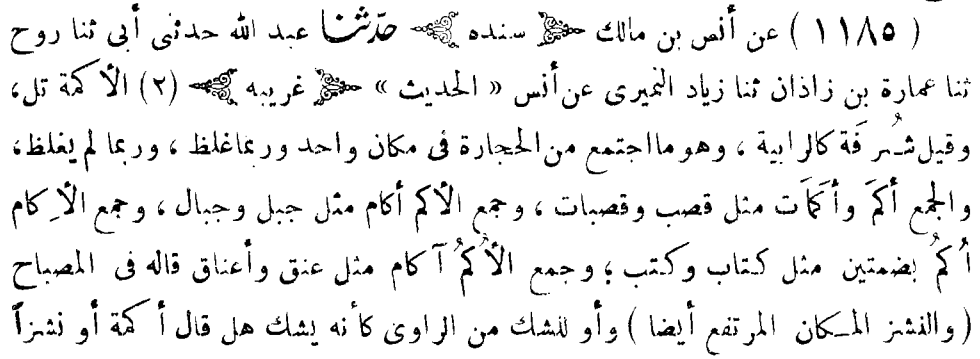 ( ١١٨٥ ) عن أنس بن مالك ﴿ سنده ﴾ حدّثنا عبد الله حدثنى أبى ثنا روح
ثنا عمارة بن زاذان ثنا زياد النميرى عن أنس « الحديث » ﴿ غريبه ﴾ (٢) الأكمة تل،
وقيل شُرفَة كالرابية ، وهو ما اجتمع من الحجارة فى مكان واحد وربما غلظ ، وربما لم يغلظ،
والجمع أكَمَ وأكَمَات مثل قصب وقصبات ، وجمع الأكم أكام مثل جبل وجبال ، وجمع الأِكام
أُكُمُ بضمتين مثل كتاب وكتب ؛ وجمع الأُكُمُ آكام مثل عنق وأعناق قاله فى المصباح
( والنشز المكان المرتفع أيضا ) وأو للشك من الراوى كأنه يشك هل قال أكمة أو نشزاً